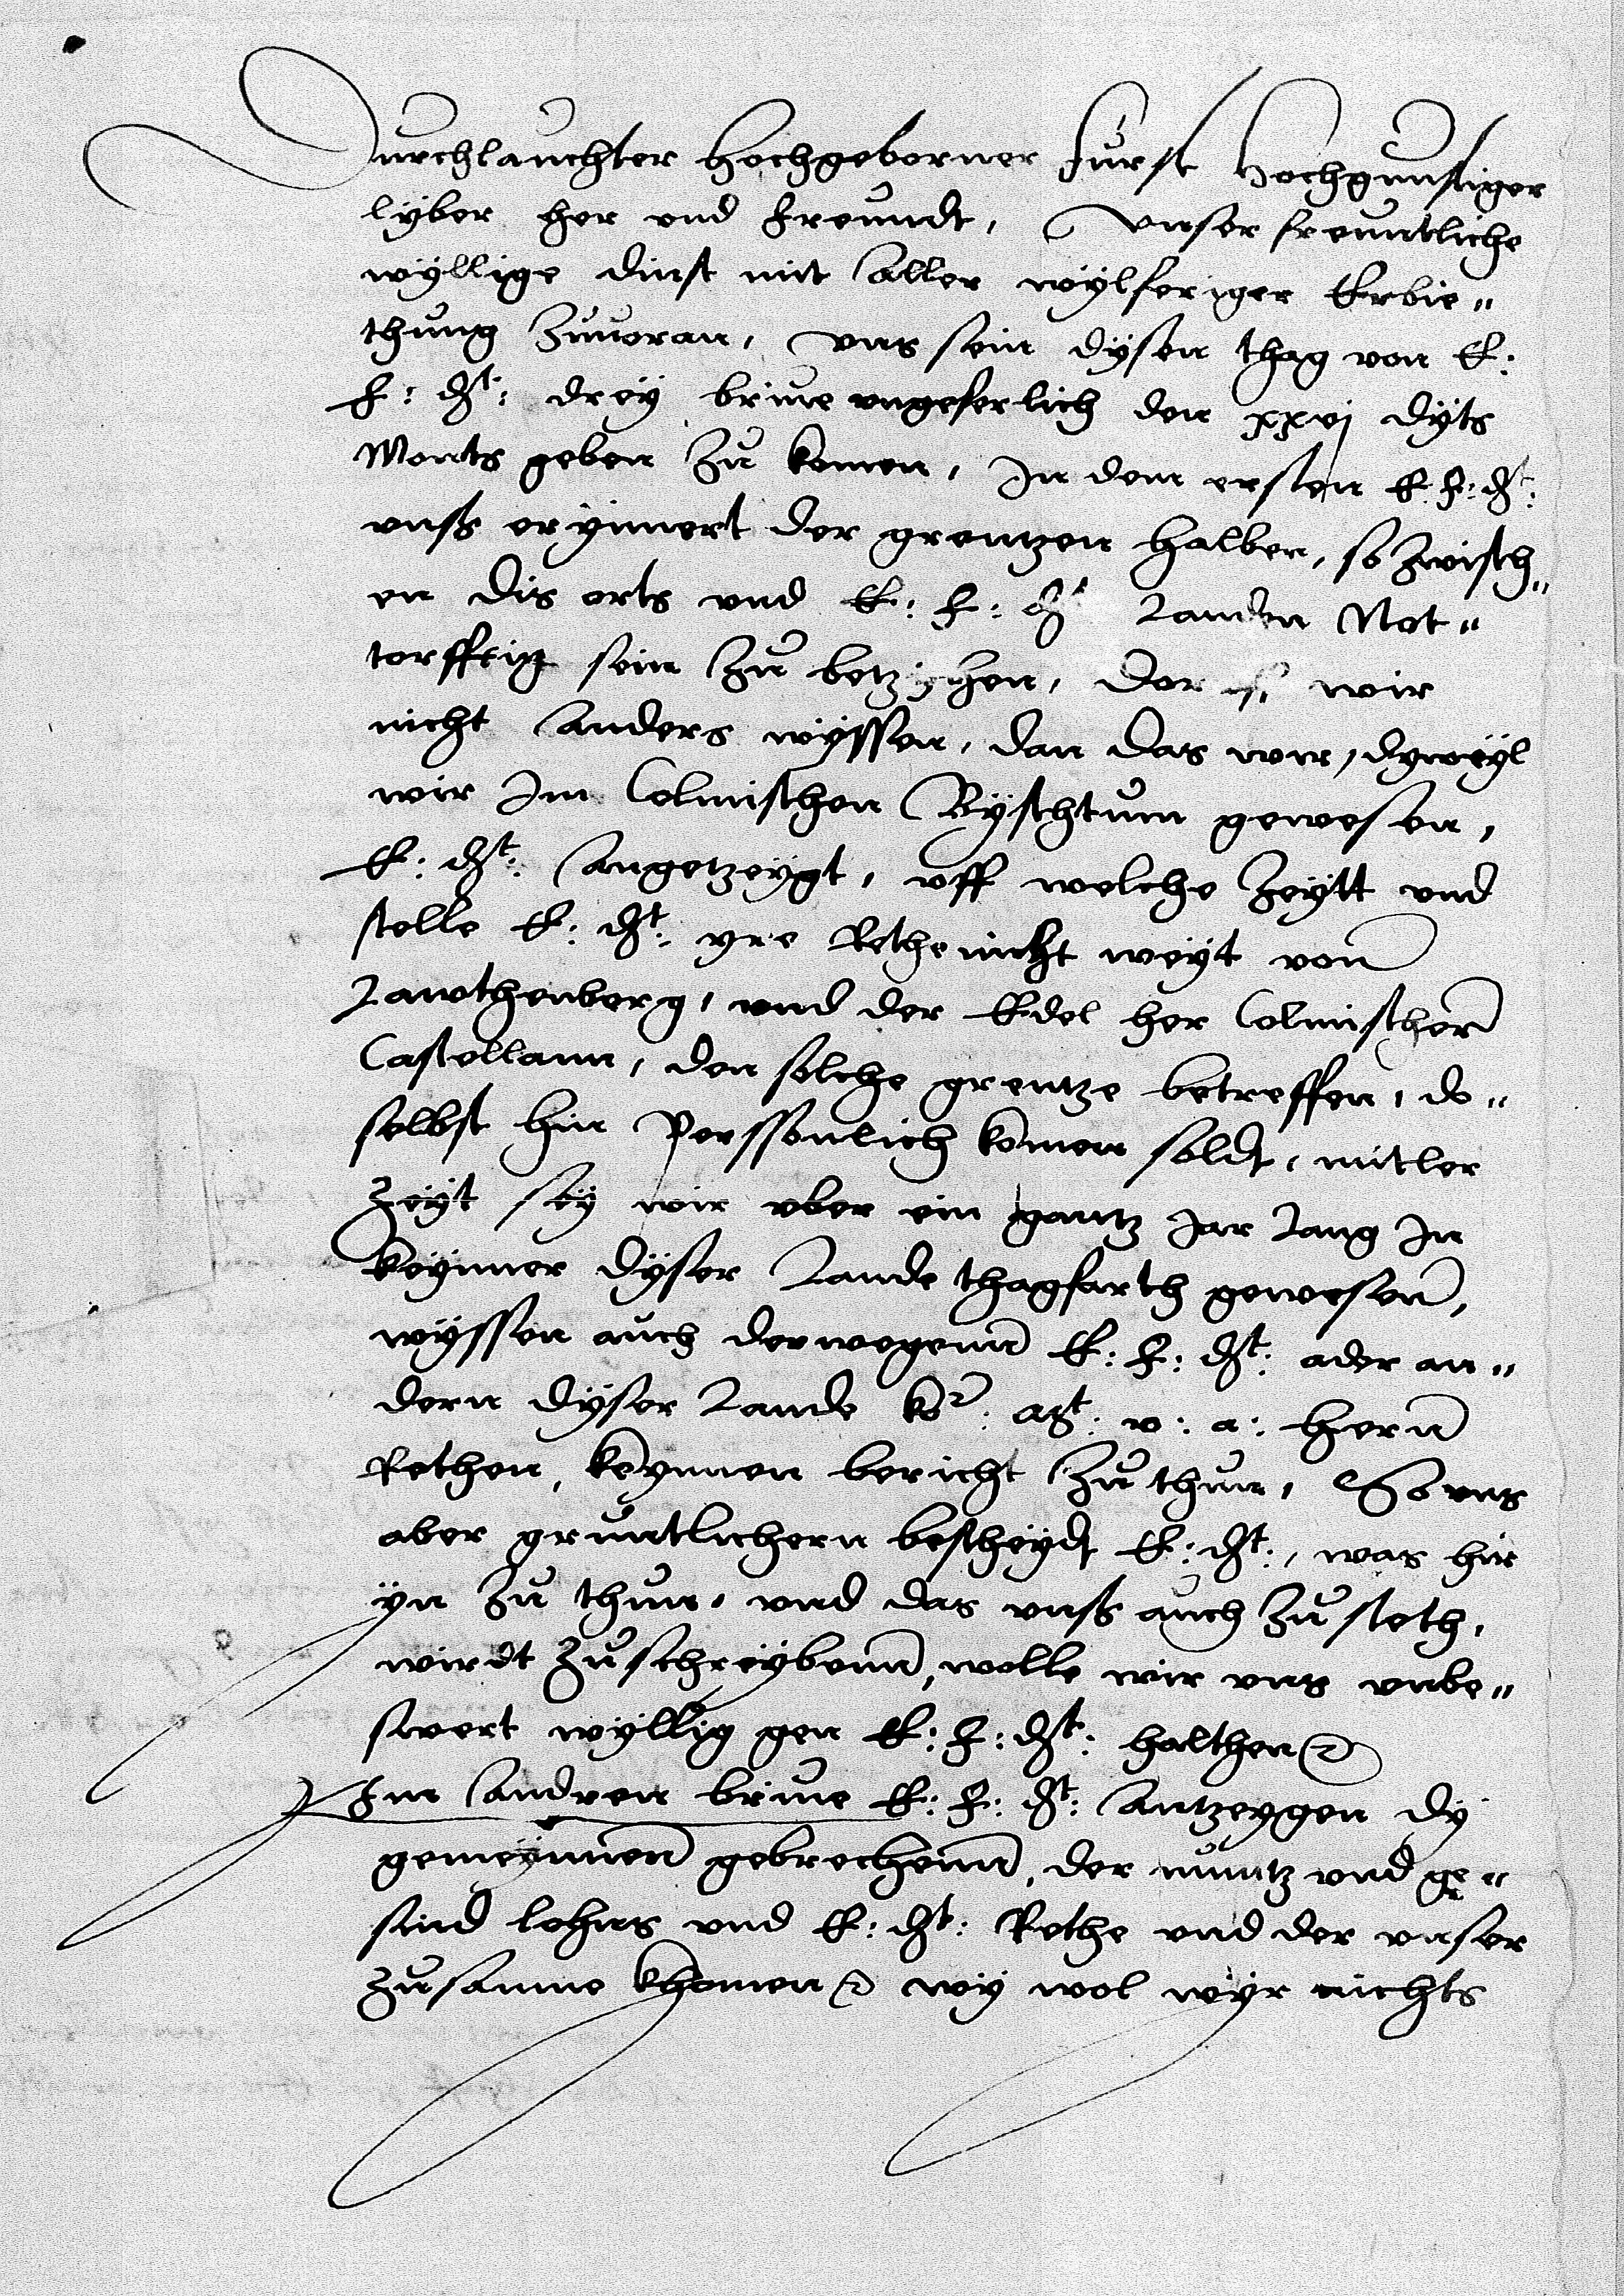 Durchlauchter Hochgeborner furst Hochgunstiger
lyber her vnd freundt, Vnser freuntliche
wyllige dinst mit aller wylferiger Erbie„
thung Zuuoran, vns sein dysen thag von E:
F: dt: drey briue vngeferlich den xxvj dyts
Monts geben Zu komen, In dem ersten E: F: dt:
vnß erynnert der grentzen halber, so Zwisch„
en dis orts vnd E: F: dt Landen Not„
torfftig sein Zu betzyhen, wir
nicht anders wyssen, dan das wir, dyweyl
wir Im Colmischen Byschtum gewesen,
E: dt: angetzeygt, vff welche Zeytt vnd
stelle E: dt: yre Rethe nicht weyt von
Lawthenberg, vnd der Edel her Colmischer
Castellann, den solche grentze betreffen, do„
selbst hin Perssonlich komen soldt, mitler
Zeyt sey wir vber ein gantz Jar lang In
keynner dyser Lande thagfarth gewesen,
wyssen auch derwegenn E: F: dt: ader an„
dern dyser Lande ko: mt: v: a: hern
Rethen, keynnen bericht Zu thun, So vns
aber gruntlichern bescheydt E: dt:, was hir
yn Zu thun, vnd das vnß auch Zu steth,
wirdt Zuschreybenn, wolle wir vns vnbe„
swert wyllig gen E: F: dt: halthen etc
Im andren briue E: F: dt: antzeygen dy
gemeynnen gebrechenn, der muntz vnd ge„
sind lohns vnd E: dt: Rethe vnd der vnser
Zusamme khomen etc wy wol wyr nichts